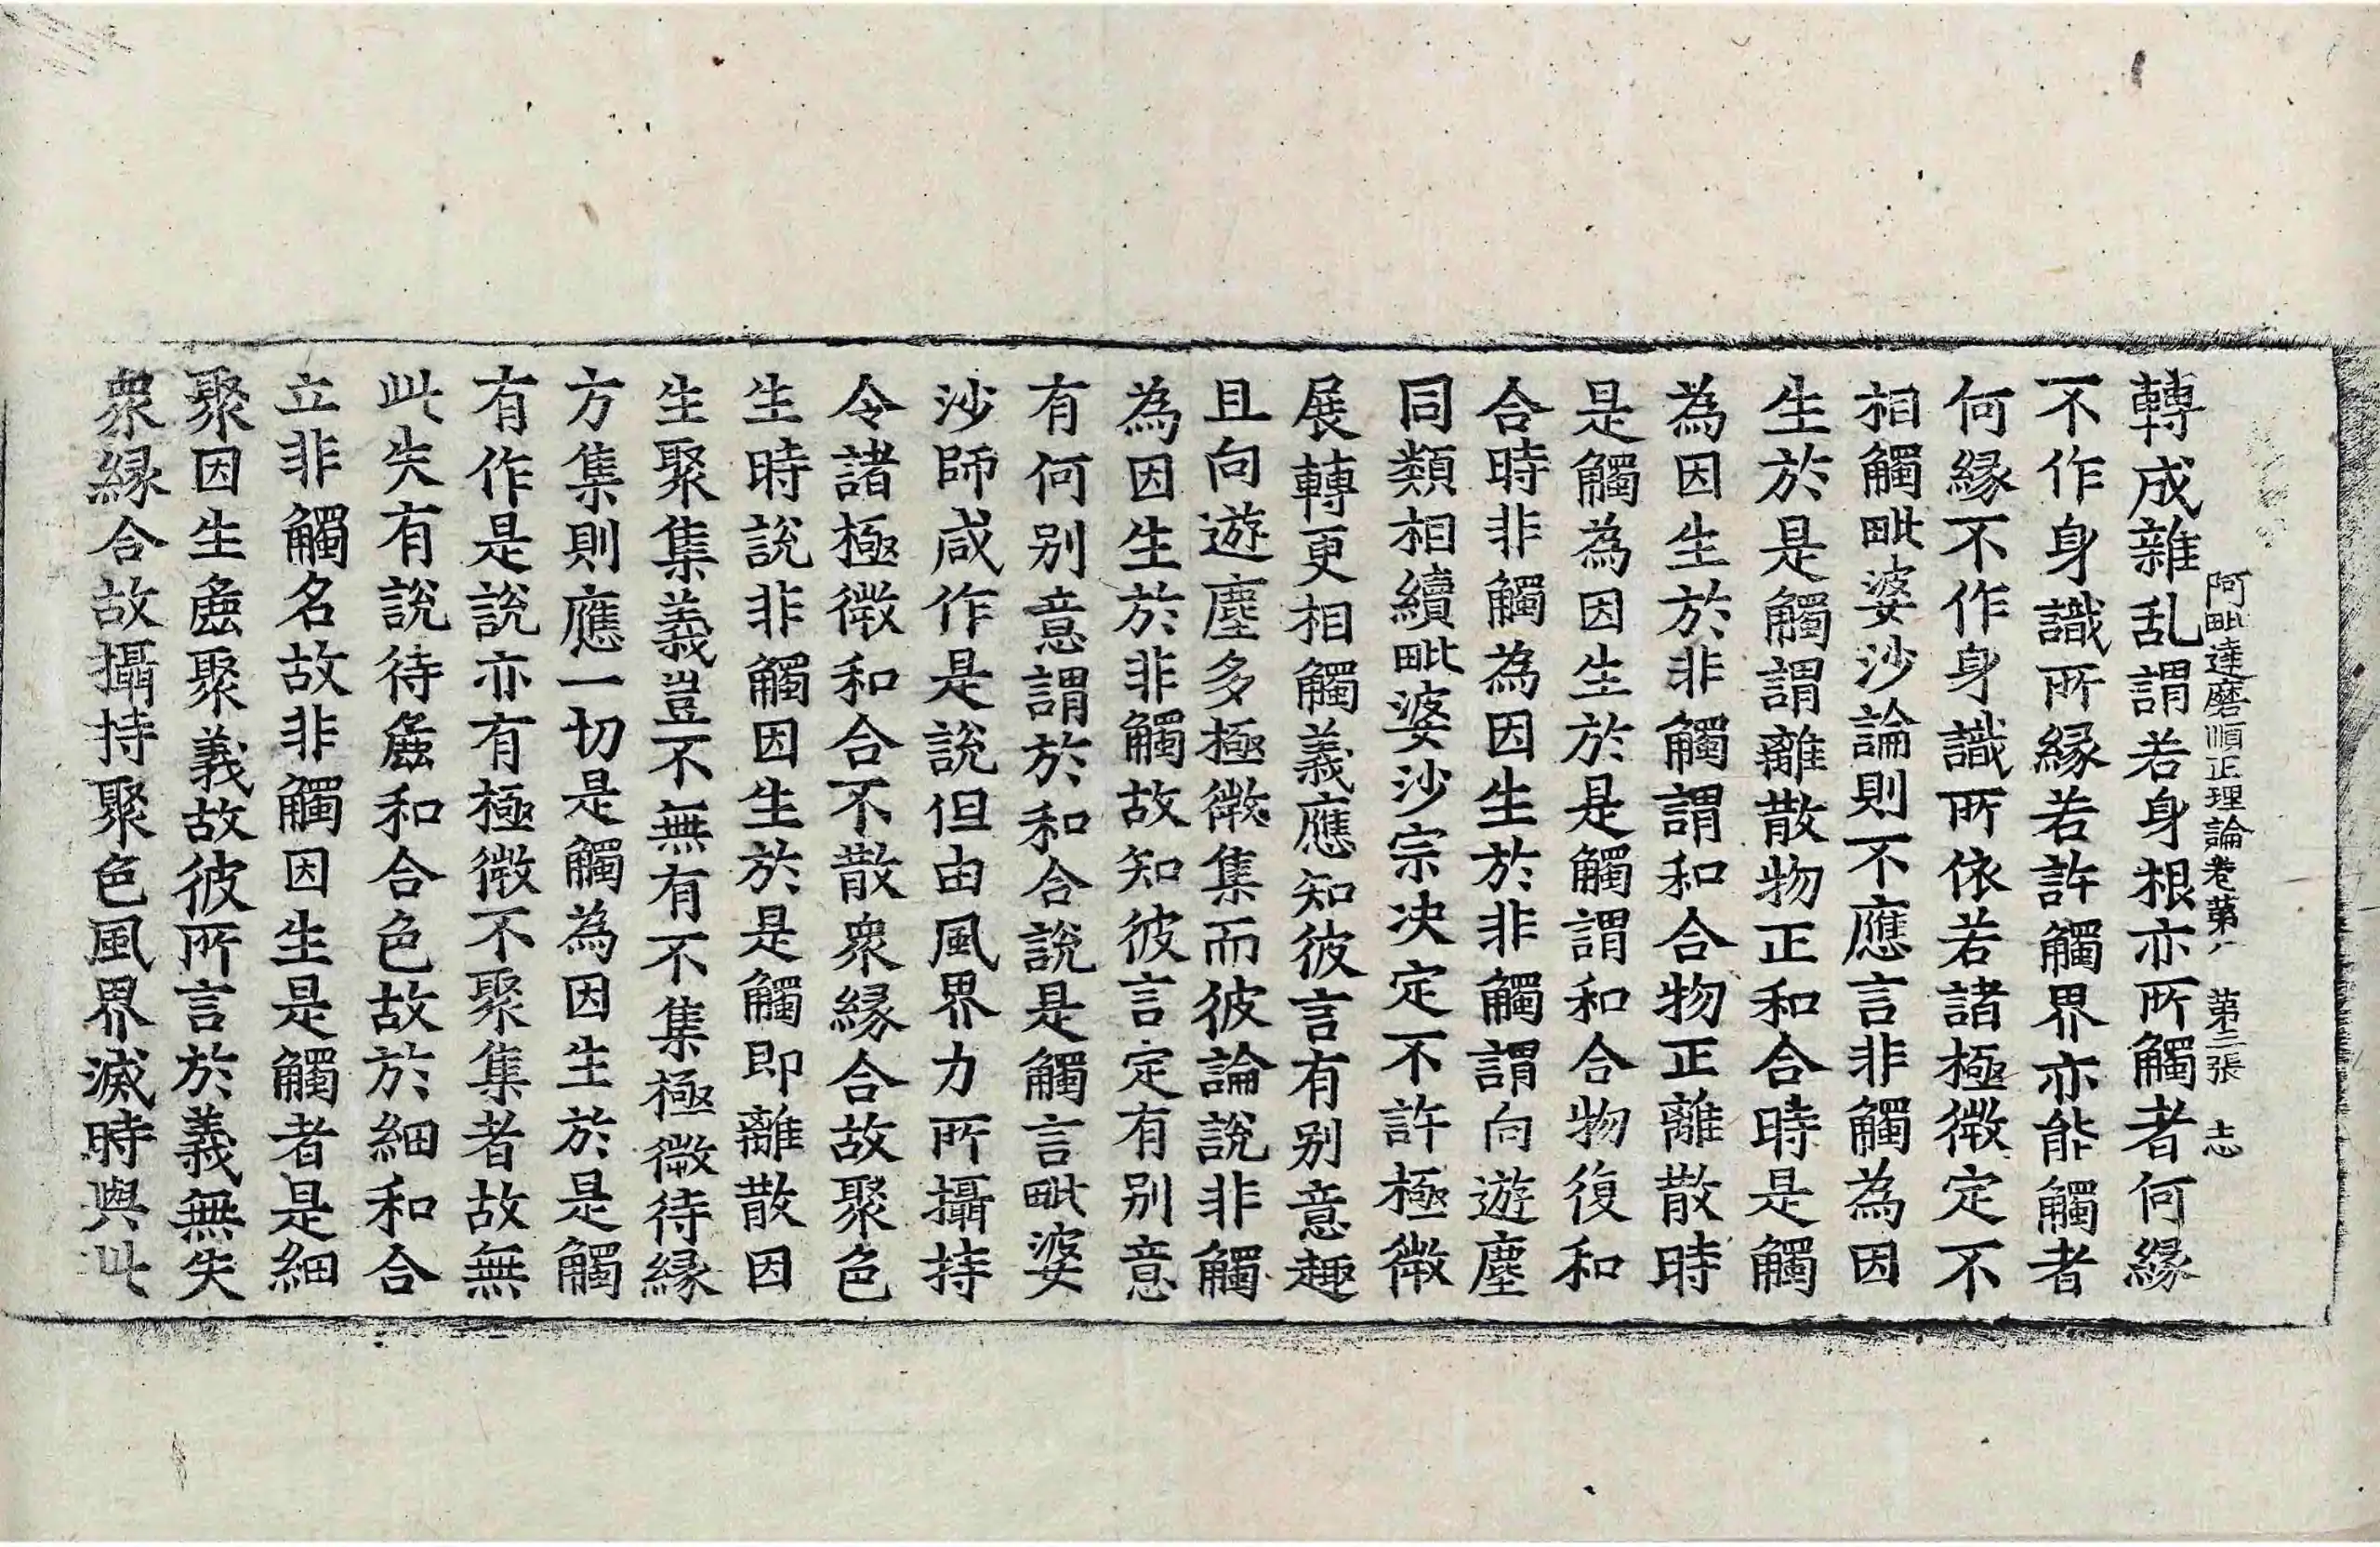 轉成雜乱謂若身根亦所觸者何縁
阿毗達磨順正理論卷第八 第三張 志
不作身識所縁若許觸界亦能觸者
何縁不作身識所依若諸極微定不
相觸毗婆沙論則不應言非觸為因
生於是觸謂離散物正和合時是觸
為因生於非觸謂和合物正離散時
是觸為因生於是觸謂和合物復和
合時非觸為因生於非觸謂向遊塵
同類相續毗婆沙宗决定不許極微
展轉更相觸義應知彼言有别意趣
且向遊塵多極微集而彼論說非觸
為因生於非觸故知彼言定有别意
有何别意謂於和合說是觸言毗婆
沙師咸作是說但由風界力所攝持
令諸極微和合不散衆縁合故聚色
生時說非觸因生於是觸即離散因
生聚集義豈不無有不集極微待縁
方集則應一切是觸為因生於是觸
有作是說亦有極微不聚集者故無
此失有說待麁和合色故於細和合
立非觸名故非觸因生是觸者是細
聚因生麁聚義故彼所言於義無失
衆縁合故攝持聚色風界滅時與此